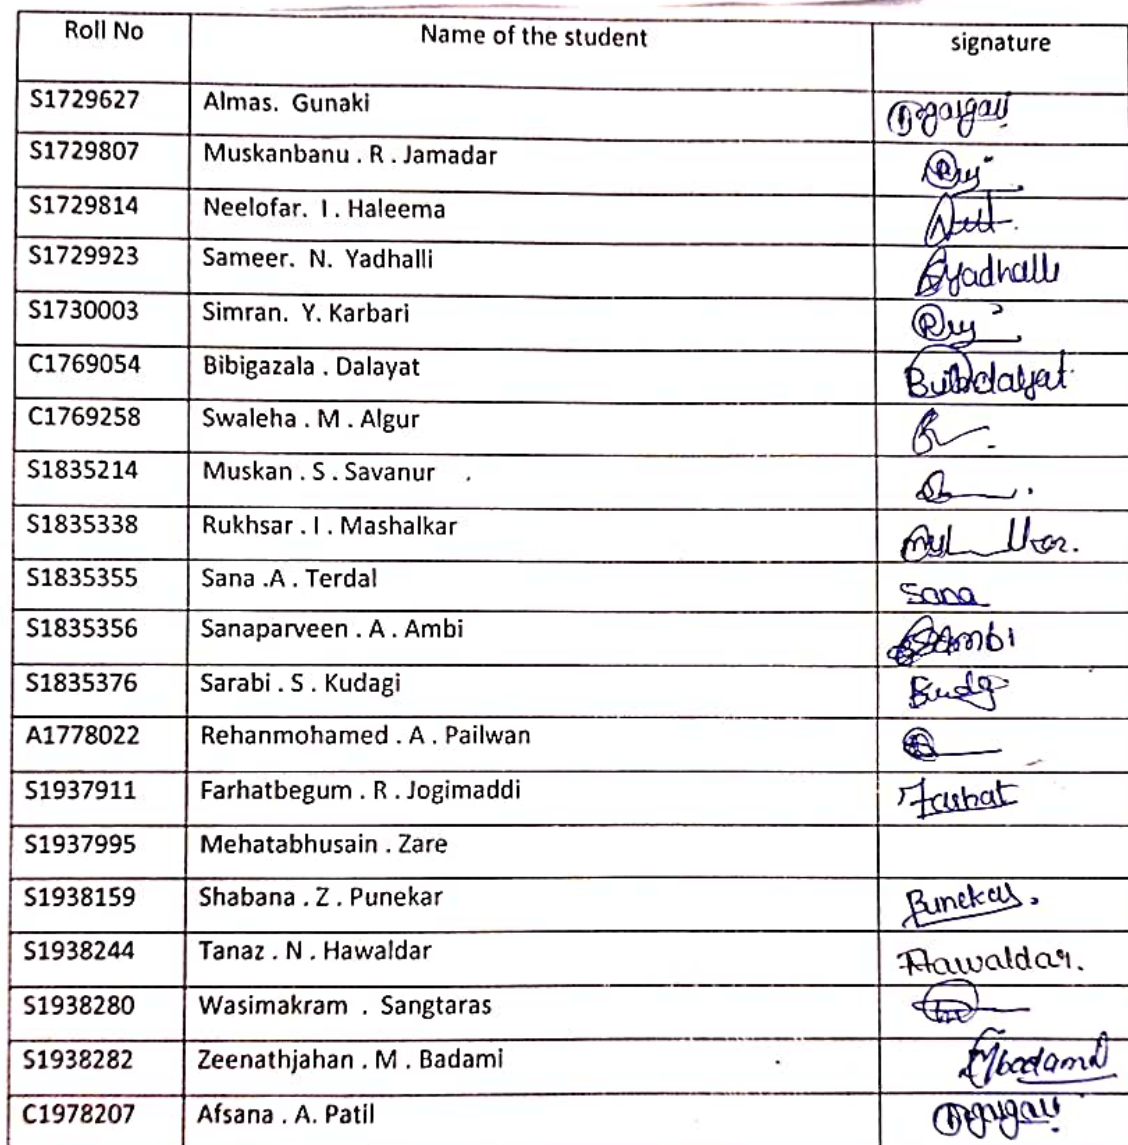 Roll No Name of the student signature
S1729627 Almas. Gunaki
S1729807 Muskanbanu . R . Jamadar
S1729814 Neelofar. I . Haleema
S1729923 Sameer. N. Yadhalli Syadhalli
S1730003 Simran. Y. Karbari
C1769054 Bibigazala . Dalayat
C1769258 Swaleha . M . Algur
S1835214 Muskan . S . Savanur
S1835338 Rukhsar . I . Mashalkar
S1835355 Sana .A . Terdal Sana
S1835356 Sanaparveen . A . Ambi
S1835376 Sarabi . S . Kudagi
A1778022 Rehanmohamed . A . Pailwan
S1937911 Farhatbegum . R . Jogimaddi Farhat
S1937995 Mehatabhusain . Zare
S1938159 Shabana . Z . Punekar Punekar.
S1938244 Tanaz . N . Hawaldar Hawaldar.
S1938280 Wasimakram . Sangtaras
S1938282 Zeenathjahan . M . Badami
C1978207 Afsana . A. Patil